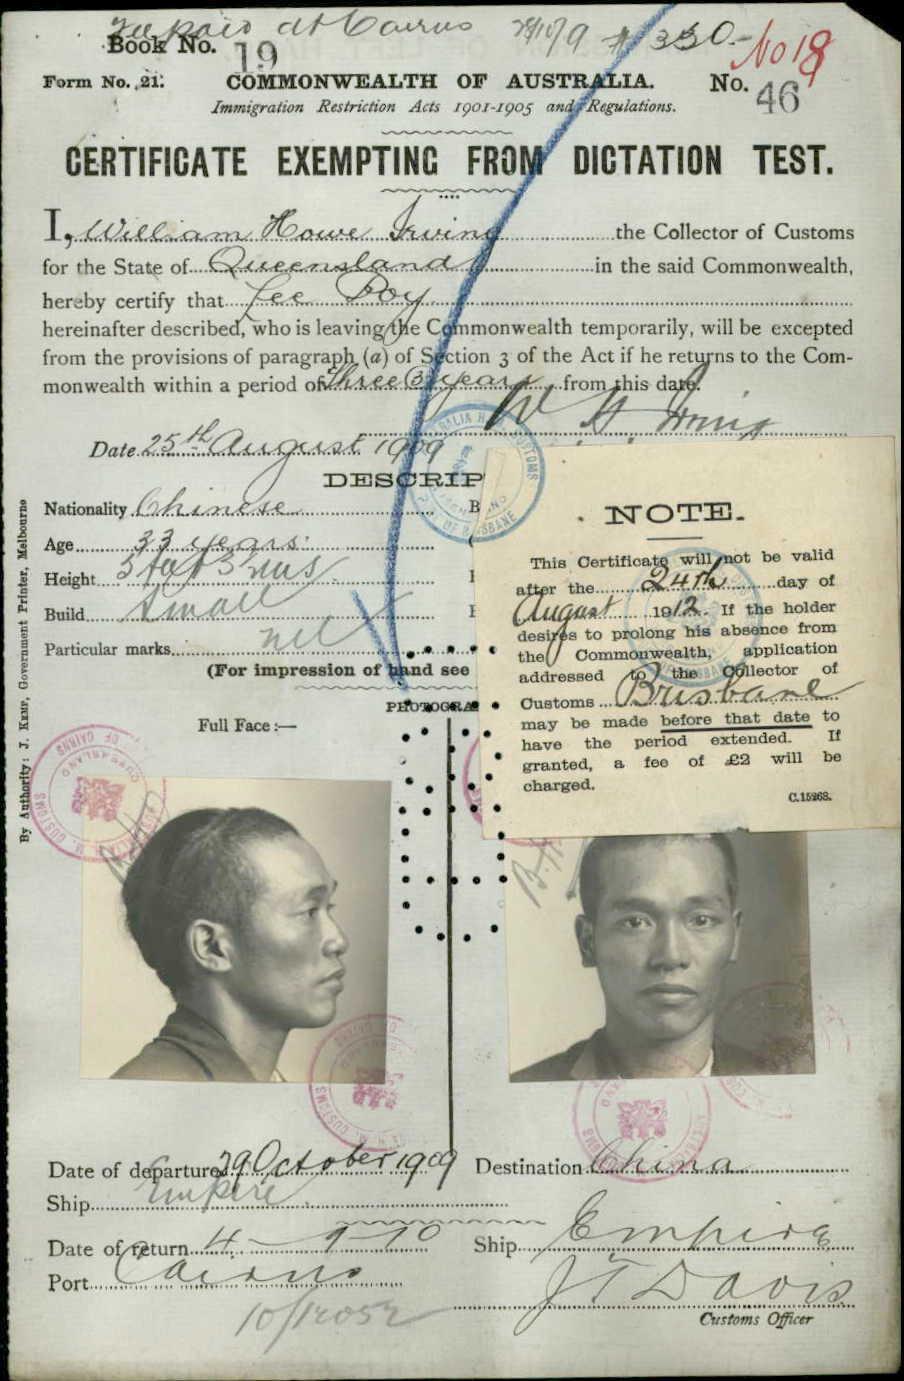 Fee paid at Cairns 28/10/9 # 330.-
Book No. 19 No 18
Form No. 21. COMMONWEALTH OF AUSTRALIA. No. 46
Immigration Restriction Acts 1901-1905 and Regulations.
CERTIFICATE EXEMPTING FROM DICTATION TEST.
I, William Howe Irving the Collector of Customs
for the State of Queensland in the said Commonwealth,
hereby certify that Lee Foy
hereinafter described, who is leaving the Commonwealth temporarily, will be excepted
from the provisions of paragraph (a) of Section 3 of the Act if he returns to the Com-
monwealth within a period of Three (3) years from this date.
W H Irving
Date 25th August 1909
DESCRIP
Nationality Chinese
Age 33 years
Height 5 feet 3 ins
Build Small
Particular marks nil
(For impression of hand see
PHOTOGRA
Full Face:—
NOTE.
This Certificate will not be valid
after the 24th day of
August 1912. If the holder
desires to prolong his absence from
the Commonwealth, application
addressed to the Collector of
Customs Brisbane
may be made before that date to
have the period extended. If
granted, a fee of £2 will be
charged.
C.15268.
By Authority: J. Kemp, Government Printer, Melbourne
Date of departure 29 October 1909 Destination China
Ship Empire
Date of return 4-9-10 Ship Empire
Port Cairns J T Davis
Customs Officer
10/12052